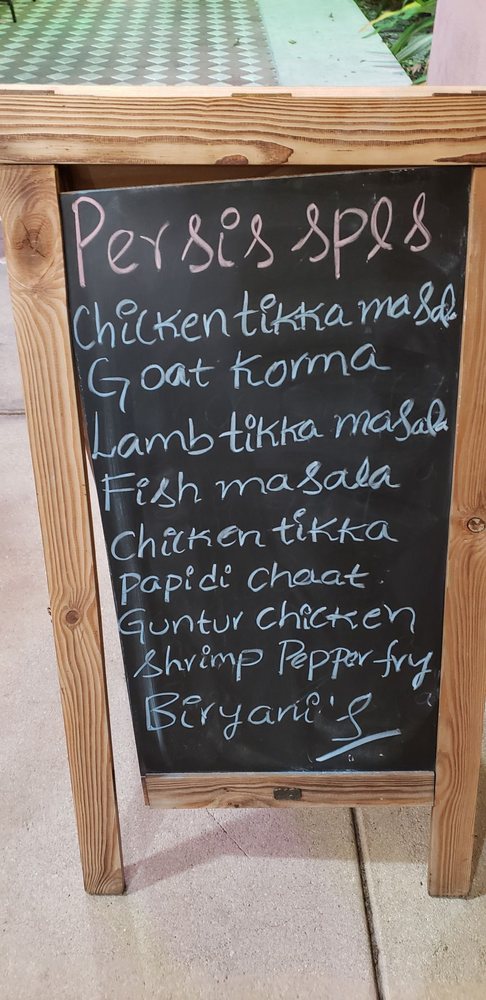 Persis spls
Chicken tikka masala
Goat korma
Lamb tikka masala
Fish masala
Chicken tikka
Papidi chaat
Guntur chicken
Shrimp Pepper fry
Biryani's